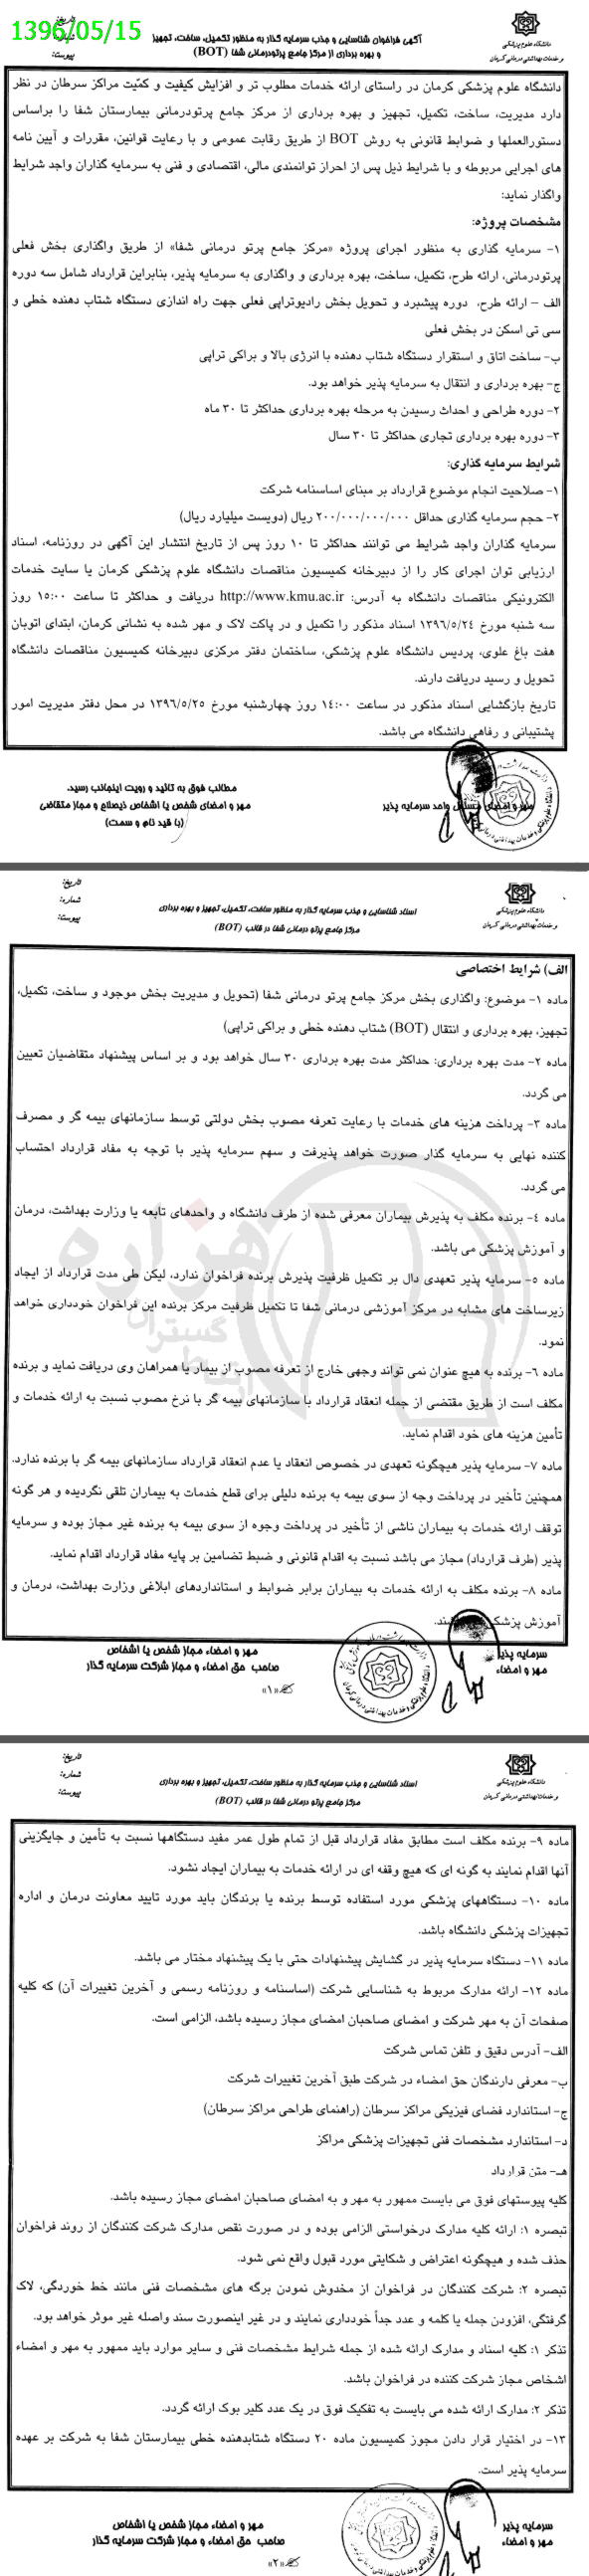 1396/05/15
تاریخ:
شماره:
پیوست:
دانشگاه علوم پزشکی
و خدمات بهداشتی درمانی کرمان
آگهی فراخوان شناسایی و جذب سرمایه گذار به منظور تکمیل، ساخت، تجهیز
و بهره برداری از مرکز جامع پرتودرمانی شفا (BOT)
دانشگاه علوم پزشکی کرمان در راستای ارائه خدمات مطلوب تر و افزایش کیفیت و کمّیت مراکز سرطان در نظر
دارد مدیریت، ساخت، تکمیل، تجهیز و بهره برداری از مرکز جامع پرتودرمانی بیمارستان شفا را براساس
دستورالعملها و ضوابط قانونی به روش BOT از طریق رقابت عمومی و با رعایت قوانین، مقررات و آیین نامه
های اجرایی مربوطه و با شرایط ذیل پس از احراز توانمندی مالی، اقتصادی و فنی به سرمایه گذاران واجد شرایط
واگذار نماید:
مشخصات پروژه:
۱- سرمایه گذاری به منظور اجرای پروژه «مرکز جامع پرتو درمانی شفا» از طریق واگذاری بخش فعلی
پرتودرمانی، ارائه طرح، تکمیل، ساخت، بهره برداری و واگذاری به سرمایه پذیر، بنابراین قرارداد شامل سه دوره
الف – ارائه طرح، دوره پیشبرد و تحویل بخش رادیوتراپی فعلی جهت راه اندازی دستگاه شتاب دهنده خطی و
سی تی اسکن در بخش فعلی
ب- ساخت اتاق و استقرار دستگاه شتاب دهنده با انرژی بالا و براکی تراپی
ج- بهره برداری و انتقال به سرمایه پذیر خواهد بود.
۲- دوره طراحی و احداث رسیدن به مرحله بهره برداری حداکثر تا ۳۰ ماه
۳- دوره بهره برداری تجاری حداکثر تا ۳۰ سال
شرایط سرمایه گذاری:
۱- صلاحیت انجام موضوع قرارداد بر مبنای اساسنامه شرکت
۲- حجم سرمایه گذاری حداقل ۲۰۰/۰۰۰/۰۰۰/۰۰۰ ریال (دویست میلیارد ریال)
سرمایه گذاران واجد شرایط می توانند حداکثر تا ۱۰ روز پس از تاریخ انتشار این آگهی در روزنامه، اسناد
ارزیابی توان اجرای کار را از دبیرخانه کمیسیون مناقصات دانشگاه علوم پزشکی کرمان یا سایت خدمات
الکترونیکی مناقصات دانشگاه به آدرس: http://www.kmu.ac.ir دریافت و حداکثر تا ساعت ۱۵:۰۰ روز
سه شنبه مورخ ۱۳۹٦/٥/٢٤ اسناد مذکور را تکمیل و در پاکت لاک و مهر شده به نشانی کرمان، ابتدای اتوبان
هفت باغ علوی، پردیس دانشگاه علوم پزشکی، ساختمان دفتر مرکزی دبیرخانه کمیسیون مناقصات دانشگاه
تحویل و رسید دریافت دارند.
تاریخ بازگشایی اسناد مذکور در ساعت ۱٤:۰۰ روز چهارشنبه مورخ ۱۳۹٦/٥/٢٥ در محل دفتر مدیریت امور
پشتیبانی و رفاهی دانشگاه می باشد.
مطالب فوق به تائید و رویت اینجانب رسید.
مهر و امضای شخص یا اشخاص ذیصلاح و مجاز متقاضی
(با قید نام و سمت)
مهر و امضای مسئول واحد سرمایه پذیر
تاریخ:
شماره:
پیوست:
دانشگاه علوم پزشکی
و خدمات بهداشتی درمانی کرمان
اسناد شناسایی و جذب سرمایه گذار به منظور ساخت، تکمیل، تجهیز و بهره برداری
مرکز جامع پرتو درمانی شفا در قالب (BOT)
الف) شرایط اختصاصی
ماده ۱- موضوع: واگذاری بخش مرکز جامع پرتو درمانی شفا (تحویل و مدیریت بخش موجود و ساخت، تکمیل،
تجهیز، بهره برداری و انتقال (BOT) شتاب دهنده خطی و براکی تراپی)
ماده ۲- مدت بهره برداری: حداکثر مدت بهره برداری ۳۰ سال خواهد بود و بر اساس پیشنهاد متقاضیان تعیین
می گردد.
ماده ۳- پرداخت هزینه های خدمات با رعایت تعرفه مصوب بخش دولتی توسط سازمانهای بیمه گر و مصرف
کننده نهایی به سرمایه گذار صورت خواهد پذیرفت و سهم سرمایه پذیر با توجه به مفاد قرارداد احتساب
می گردد.
ماده ٤- برنده مکلف به پذیرش بیماران معرفی شده از طرف دانشگاه و واحدهای تابعه یا وزارت بهداشت، درمان
و آموزش پزشکی می باشد.
ماده ٥- سرمایه پذیر تعهدی دال بر تکمیل ظرفیت پذیرش برنده فراخوان ندارد، لیکن طی مدت قرارداد از ایجاد
زیرساخت های مشابه در مرکز آموزشی درمانی شفا تا تکمیل ظرفیت مرکز برنده این فراخوان خودداری خواهد
نمود.
ماده ٦- برنده به هیچ عنوان نمی تواند وجهی خارج از تعرفه مصوب از بیمار یا همراهان وی دریافت نماید و برنده
مکلف است از طریق مقتضی از جمله انعقاد قرارداد با سازمانهای بیمه گر با نرخ مصوب نسبت به ارائه خدمات و
تأمین هزینه های خود اقدام نماید.
ماده ۷- سرمایه پذیر هیچگونه تعهدی در خصوص انعقاد یا عدم انعقاد قرارداد سازمانهای بیمه گر با برنده ندارد.
همچنین تأخیر در پرداخت وجه از سوی بیمه به برنده دلیلی برای قطع خدمات به بیماران تلقی نگردیده و هر گونه
توقف ارائه خدمات به بیماران ناشی از تأخیر در پرداخت وجوه از سوی بیمه به برنده غیر مجاز بوده و سرمایه
پذیر (طرف قرارداد) مجاز می باشد نسبت به اقدام قانونی و ضبط تضامین بر پایه مفاد قرارداد اقدام نماید.
ماده ۸- برنده مکلف به ارائه خدمات به بیماران برابر ضوابط و استانداردهای ابلاغی وزارت بهداشت، درمان و
آموزش پزشکی
هزاره
گستران
سرمایه پذیر
مهر و امضاء
مهر و امضاء مجاز شخص یا اشخاص
صاحب حق امضاء و مجاز شرکت سرمایه گذار
«۱»
تاریخ:
شماره:
پیوست:
دانشگاه علوم پزشکی
و خدمات بهداشتی درمانی کرمان
اسناد شناسایی و جذب سرمایه گذار به منظور ساخت، تکمیل، تجهیز و بهره برداری
مرکز جامع پرتو درمانی شفا در قالب (BOT)
ماده ۹- برنده مکلف است مطابق مفاد قرارداد قبل از تمام طول عمر مفید دستگاهها نسبت به تأمین و جایگزینی
آنها اقدام نمایند به گونه ای که هیچ وقفه ای در ارائه خدمات به بیماران ایجاد نشود.
ماده ۱۰- دستگاههای پزشکی مورد استفاده توسط برنده یا برندگان باید مورد تایید معاونت درمان و اداره
تجهیزات پزشکی دانشگاه باشد.
ماده ۱۱- دستگاه سرمایه پذیر در گشایش پیشنهادات حتی با یک پیشنهاد مختار می باشد.
ماده ۱۲- ارائه مدارک مربوط به شناسایی شرکت (اساسنامه و روزنامه رسمی و آخرین تغییرات آن) که کلیه
صفحات آن به مهر شرکت و امضای صاحبان امضای مجاز رسیده باشد، الزامی است.
الف- آدرس دقیق و تلفن تماس شرکت
ب- معرفی دارندگان حق امضاء در شرکت طبق آخرین تغییرات شرکت
ج- استاندارد فضای فیزیکی مراکز سرطان (راهنمای طراحی مراکز سرطان)
د- استاندارد مشخصات فنی تجهیزات پزشکی مراکز
هـ- متن قرارداد
کلیه پیوستهای فوق می بایست ممهور به مهر و به امضای صاحبان امضای مجاز رسیده باشد.
تبصره ۱: ارائه کلیه مدارک درخواستی الزامی بوده و در صورت نقص مدارک شرکت کنندگان از روند فراخوان
حذف شده و هیچگونه اعتراض و شکایتی مورد قبول واقع نمی شود.
تبصره ۲: شرکت کنندگان در فراخوان از مخدوش نمودن برگه های مشخصات فنی مانند خط خوردگی، لاک
گرفتگی، افزودن جمله یا کلمه و عدد جداً خودداری نمایند و در غیر اینصورت سند واصله غیر موثر خواهد بود.
تذکر ۱: کلیه اسناد و مدارک ارائه شده از جمله شرایط مشخصات فنی و سایر موارد باید ممهور به مهر و امضاء
اشخاص مجاز شرکت کننده در فراخوان باشد.
تذکر ۲: مدارک ارائه شده می بایست به تفکیک فوق در یک عدد کلیر بوک ارائه گردد.
۱۳- در اختیار قرار دادن مجوز کمیسیون ماده ۲۰ دستگاه شتابدهنده خطی بیمارستان شفا به شرکت بر عهده
سرمایه پذیر است.
سرمایه پذیر
مهر و امضاء
مهر و امضاء مجاز شخص یا اشخاص
صاحب حق امضاء و مجاز شرکت سرمایه گذار
«۲»